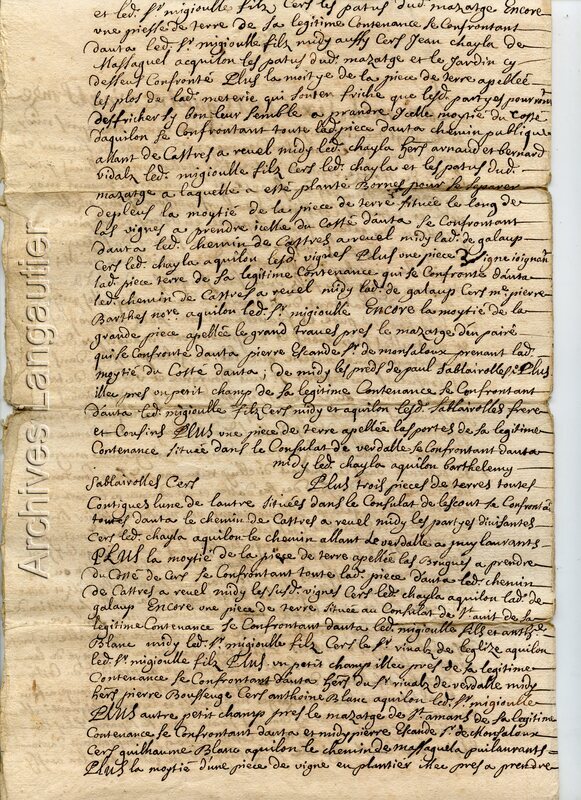 et led. Sr. migioulle filz Cers les patus dud. mazatge Encore
une piesse de terre de sa legitime Contenance se Confrontant
dauta led. Sr. migioulle filz midy aussy Cers Jean chayla de
Massaguel acquilon les patus dud. mazatge et le Jardin cy
dessus Confronté PLus la moitye de la piece de terre apellée
les plos de lad. meterie qui sont en friche que lesd. partyes pourront
deffricher sy bon leur semble a prandre Jcelle moytié du Costé
d'aquilon se Confrontant toute lad. piece dauta chemin publique
allant de Castres a revel midy led. chayla hers arnaud et bernard
vidalz led. migioulle filz Cers led. chayla et les patus dud.
mazatge a laquelle a esté planté Bornes pour se separer
de pleus la moytié de la piece de terre située le long de
las vignes a prendre icelle du Costé dauta se Confrontant
dauta led. chemin de Castres a revel midy lad. de galaup
Cers led. chayla aquilon lesd. vignes PLus une piece vigne joignant
lad. piece terre de sa legitime Contenance qui se Confronte dauta
led. chemin de Castres a revel midy lad. de galaup Cers me. pierre
Barthes nore aquilon led. Sr. migioulle Encore la moytié de la
grande piece apellée le grand traves pres le mazatge den pairé
qui se Confronte dauta pierre Escande Sr. de monsaloux prenant lad.
moytié du Costé dauta; de midy les preds de paul Sablairolles PLus
illec pres un petit champ de sa legitime Contenance se Confrontant
dauta led. migioulle filz Cers midy et aquilon lesd. Sablairolles frere
et Cousins PLus une piece de terre apellée les portes de sa legitime
Contenance située dans le Consulat de verdalle se Confrontant dauta
midy led. chayla aquilon barthelemy
Sablairolles Cers PLus trois pieces de terres toutes
Contigues lune de lautre situées dans le Consulat de lescout se Confrontant
toutes dauta le chemin de Castres a revel midy les partyes divisantes
Cers led. chayla aquilon le chemin allant de verdalle a puylaurants
PLus la moytié de la piece de terre apellée les Brugues a prendre
du Costé de Cers se Confrontant toute lad. piece dauta led. chemin
de Castres a revel midy les susd. vignes Cers led. chayla aquilon lad. de
galaup Encore une piece de terre située au Consulat de St. avit de sa
legitime Contenance se Confrontant dauta led. migioulle filz et anthe.
Blanc midy led. Sr. migioulle filz Cers le Sr. vinalz de leglize aquilon
led. Sr. migioulle filz PLus un petit champ illec pres de sa legitime
Contenance se Confrontant dauta hers du Sr. vinalz de verdalle midy
hers pierre Boussenge Cers anthoine Blanc aquilon led. Sr. migioulle
PLus autre petit champ pres le mazatge de St. amans de sa legitime
Contenance se Confrontant dauta et midy pierre Escande Sr. de Monsaloux
Cers guilhaume Blanc aquilon le chemin de massaguel a puilaurants
PLus la moytié d'une piece de vigne en plantier illec pres a prendre
Archives Langautier